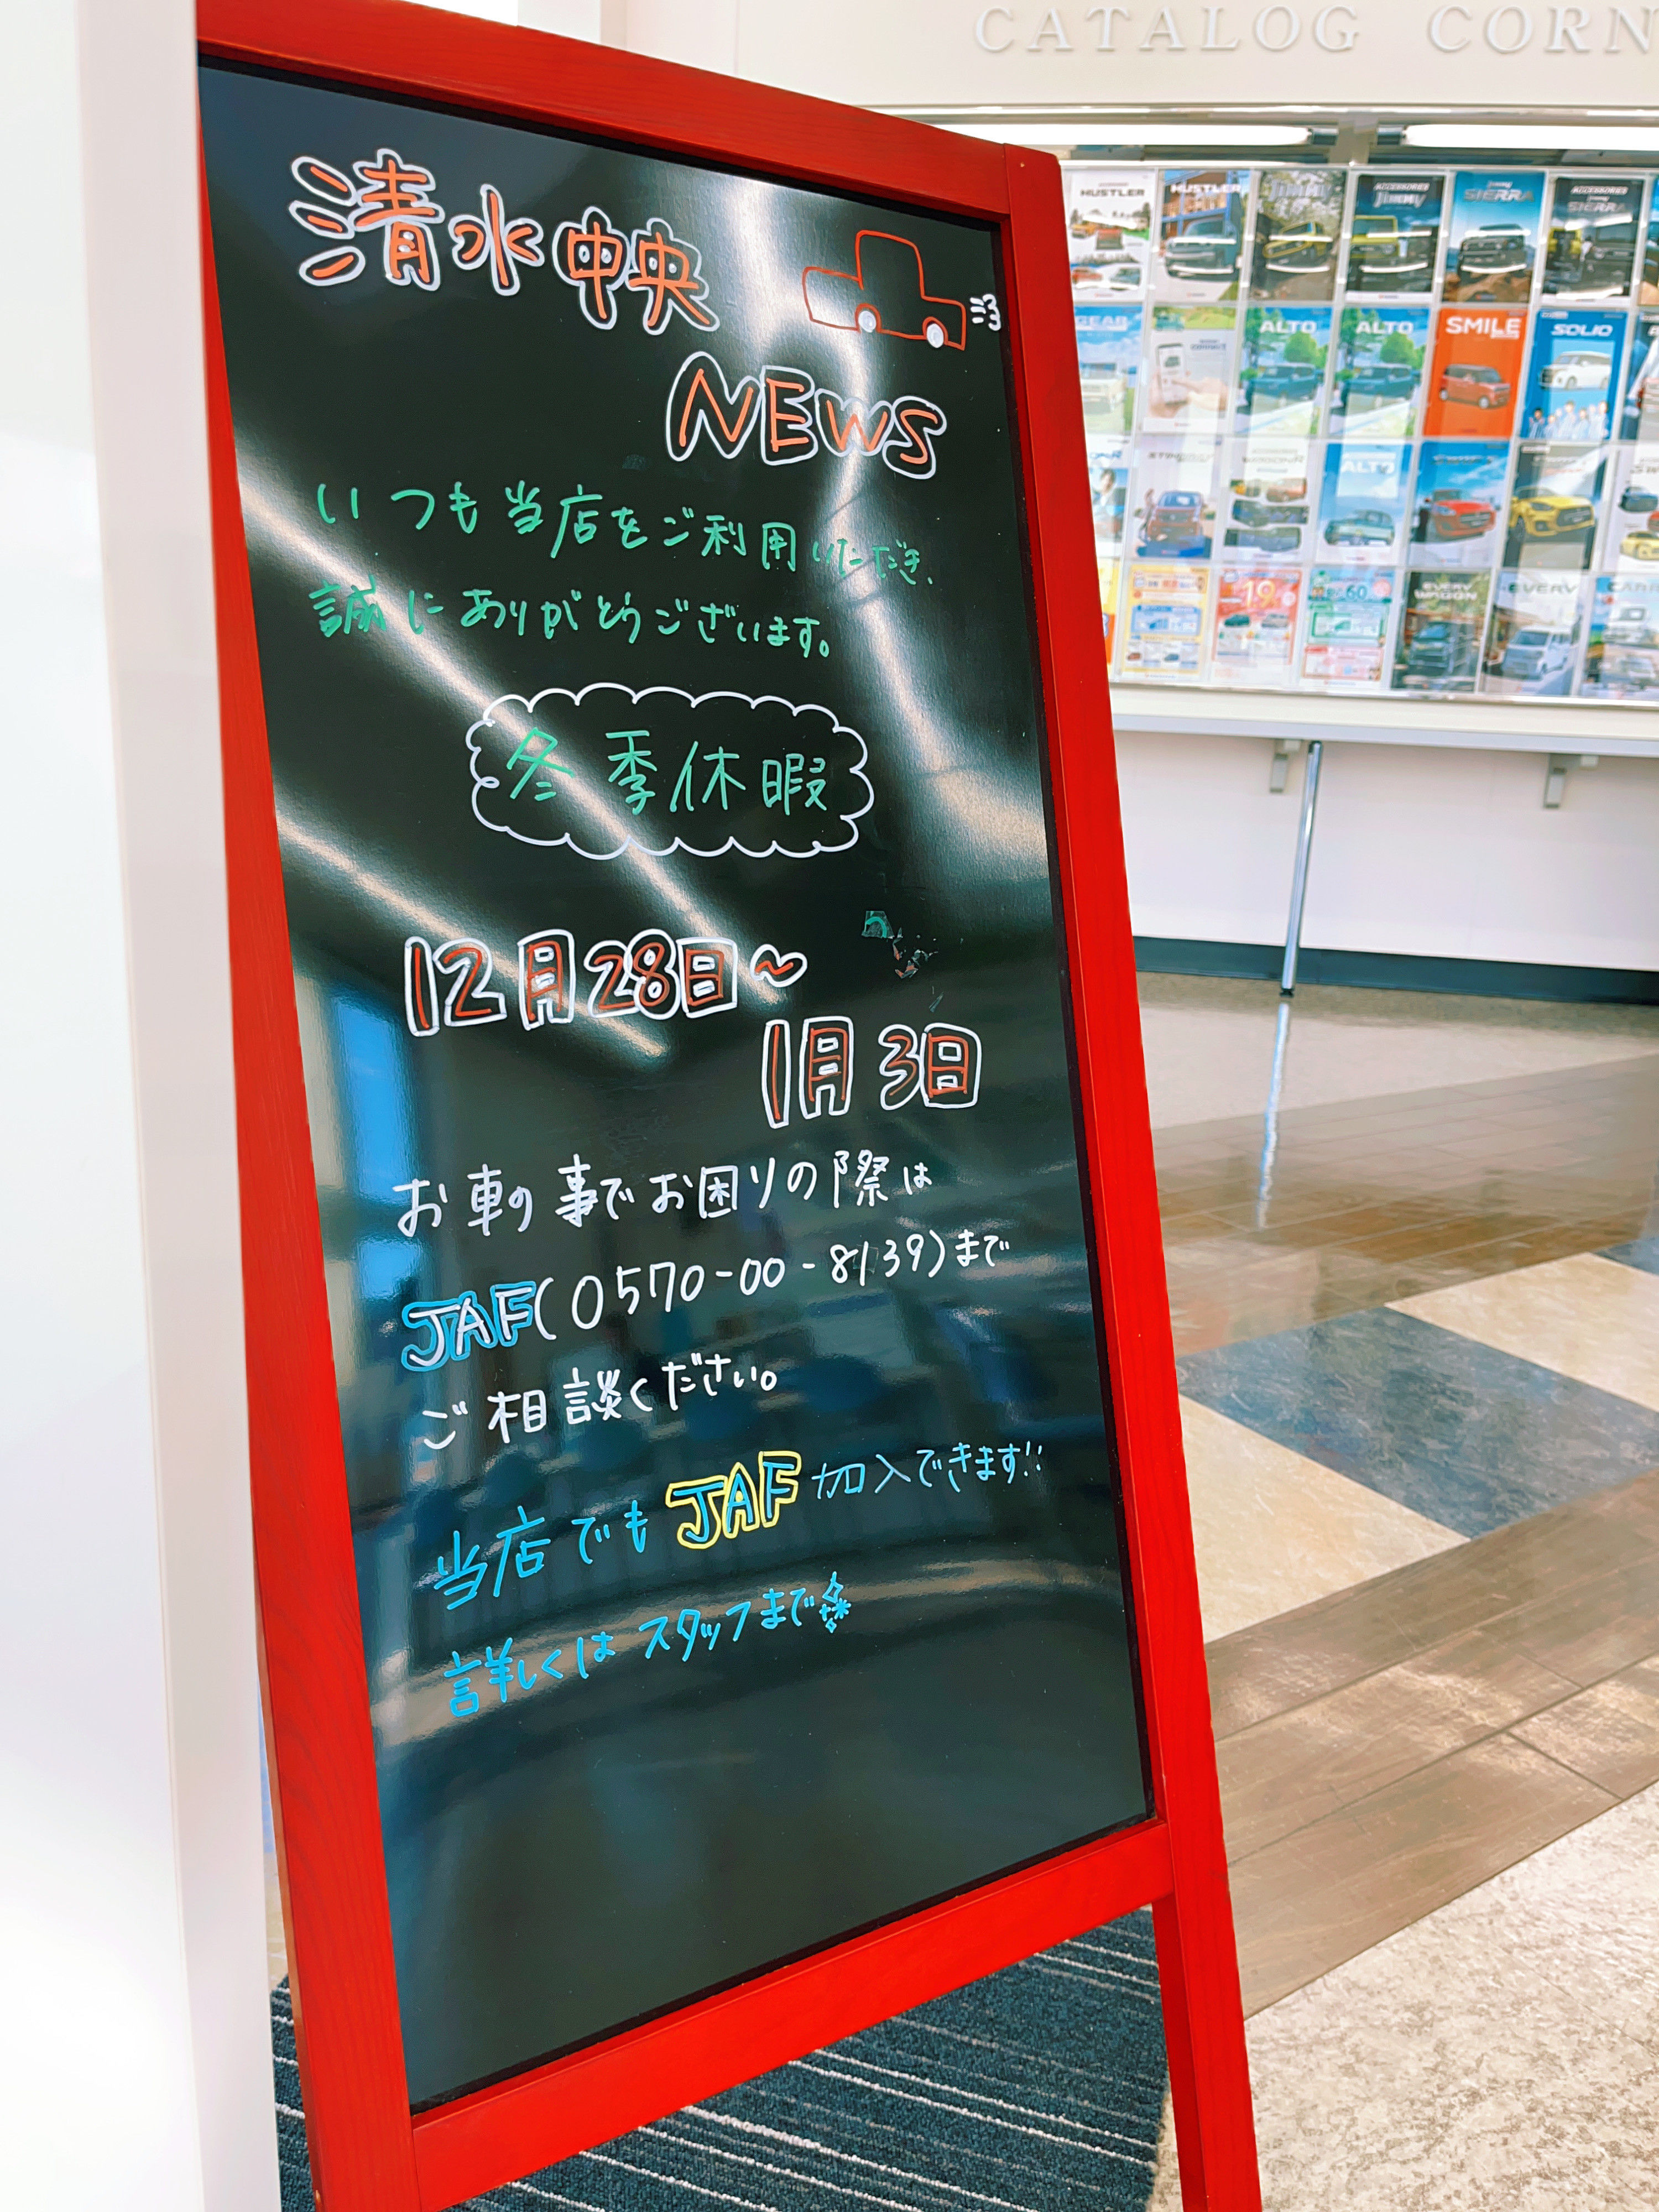 CATALOG CORN
清水中央
NEWS
いつも当店をご利用いただき、
誠にありがとうございます。
冬季休暇
12月28日~
1月3日
お車の事でお困りの際は
JAF(0570-00-8139)まで
ご相談ください。
当店でもJAF加入できます!!
詳しくはスタッフまで
HUSTLER
HUSTLER
Jimny
ACCESSORIES Jimny
Jimny SIERRA
ACCESSORIES Jimny SIERRA
GEAR
ALTO
ALTO
SMILE
SOLIO
ALTO
19
60
EVERY WAGON
EVERY